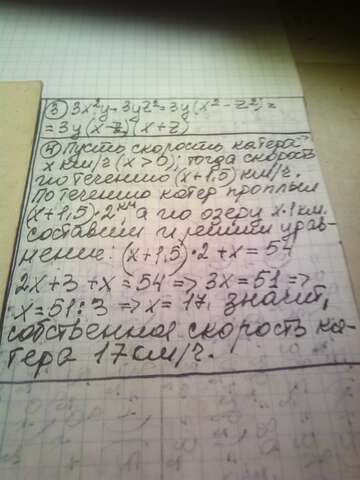 ③ 3x²y - 3yz² = 3y(x² - z²) =
= 3y(x-z)(x+z)
④ Пусть скорость катера
x км/ч (x > 0), тогда скорость
по течению (x+1,5) км/ч.
По течению катер проплыл
(x+1,5)·2 км, а по озеру x·1 км.
составим и решим урав-
нение: (x+1,5)·2 + x = 54
2x + 3 + x = 54 => 3x = 51 =>
x = 51 : 3 => x = 17. значит,
собственная скорость ка-
тера 17 км/ч.